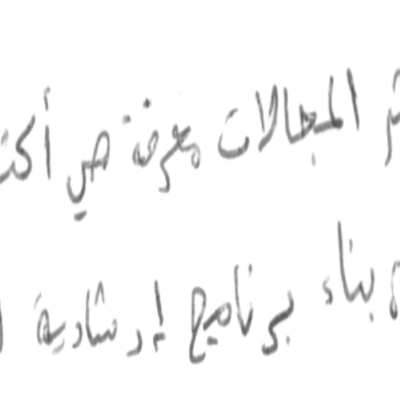 المجالات معرفة هي أكث
بناء برنامج إرشادية